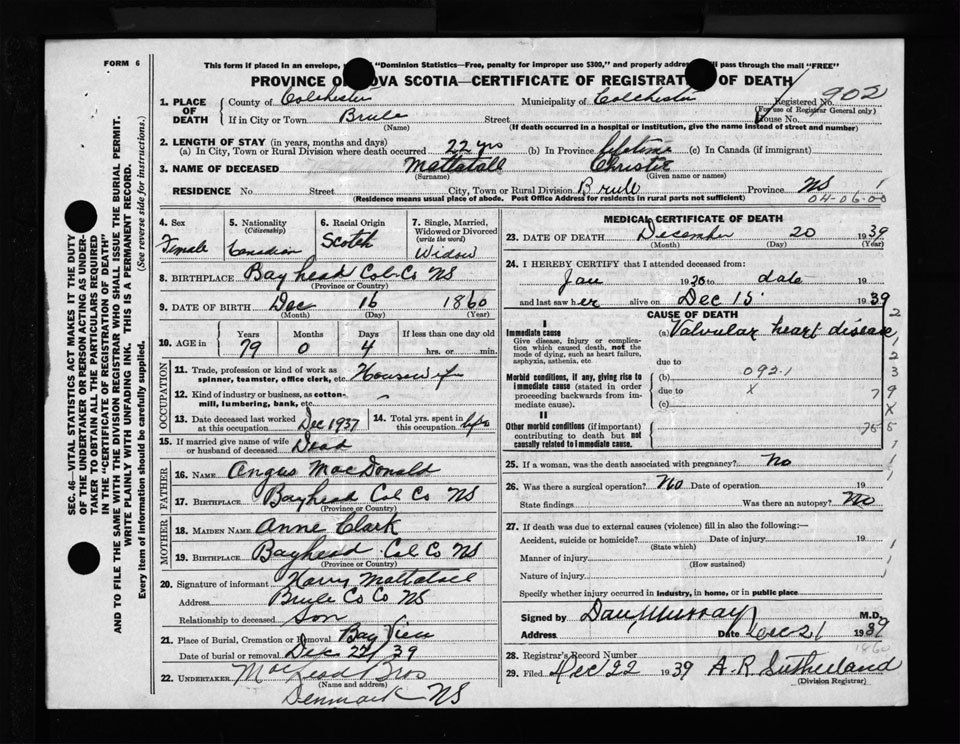 FORM 6
This form if placed in an envelope, "Dominion Statistics—Free, penalty for improper use $300," and properly will pass through the mail "FREE"
PROVINCE OF NOVA SCOTIA—CERTIFICATE OF REGISTRATION OF DEATH
1. PLACE OF DEATH County of Colchester Municipality of Colchester Registered No. 902
(For use of Registrar General only)
If in City or Town Brule Street House No.
(Name) (If death occurred in a hospital or institution, give the name instead of street and number)
2. LENGTH OF STAY (in years, months and days)
(a) In City, Town or Rural Division where death occurred 22 yrs (b) In Province lifetime (c) In Canada (if immigrant)
3. NAME OF DECEASED Mattatall Christie
(Surname) (Given name or names)
RESIDENCE No. Street City, Town or Rural Division Brule Province NS 1
(Residence means usual place of abode. Post Office Address for residents in rural parts not sufficient) 04-06-00
SEC. 46—VITAL STATISTICS ACT MAKES IT THE DUTY
OF THE UNDERTAKER OR PERSON ACTING AS UNDER-
TAKER TO OBTAIN ALL THE PARTICULARS REQUIRED
IN THE "CERTIFICATE OF REGISTRATION OF DEATH"
AND TO FILE THE SAME WITH THE DIVISION REGISTRAR WHO SHALL ISSUE THE BURIAL PERMIT.
WRITE PLAINLY WITH UNFADING INK. THIS IS A PERMANENT RECORD.
Every item of information should be carefully supplied. (See reverse side for instructions.)
4. Sex 5. Nationality (Citizenship) 6. Racial Origin 7. Single, Married, Widowed or Divorced (write the word)
Female Canadian Scotch Widow
8. BIRTHPLACE Bayhead Col. Co NS
(Province or Country)
9. DATE OF BIRTH Dec 16 1860
(Month) (Day) (Year)
10. AGE in Years Months Days If less than one day old
79 0 4 hrs. or min.
OCCUPATION
11. Trade, profession or kind of work as spinner, teamster, office clerk, etc. Housewife
12. Kind of industry or business, as cotton-mill, lumbering, bank, etc.
13. Date deceased last worked at this occupation Dec 1937 14. Total yrs. spent in this occupation life
15. If married give name of wife or husband of deceased Dead
FATHER
16. NAME Angus MacDonald
17. BIRTHPLACE Bayhead Col Co NS
(Province or Country)
MOTHER
18. MAIDEN NAME Anne Clark
19. BIRTHPLACE Bayhead Col Co NS
(Province or Country)
20. Signature of informant Harry Mattatall
Address Brule Co Co NS
Relationship to deceased Son
21. Place of Burial, Cremation or Removal Bay View
Date of burial or removal Dec 22/39
22. UNDERTAKER Bros
(Name and address)
Denmark NS
MEDICAL CERTIFICATE OF DEATH
23. DATE OF DEATH December 20 1939
(Month) (Day) (Year)
24. I HEREBY CERTIFY that I attended deceased from:
Jan 1930 to date 19
and last saw her alive on Dec 15 1939
CAUSE OF DEATH
I
Immediate cause (a) Valvular heart disease
Give disease, injury or complication which caused death, not the mode of dying, such as heart failure, asphyxia, asthenia, etc.
due to
Morbid conditions, if any, giving rise to immediate cause (stated in order proceeding backwards from immediate cause).
(b) 092.1
due to X
(c)
II
Other morbid conditions (if important) contributing to death but not causally related to immediate cause.
25. If a woman, was the death associated with pregnancy? No
26. Was there a surgical operation? No Date of operation 19
State findings Was there an autopsy? No
27. If death was due to external causes (violence) fill in also the following:—
Accident, suicide or homicide? Date of injury 19
(State which)
Manner of injury
(How sustained)
Nature of injury
Specify whether injury occurred in industry, in home, or in public place
Signed by Dan Murray M.D.
Address Date Dec 21 1939
1860
28. Registrar's Record Number
29. Filed Dec 22 1939 A. R. Sutherland
(Division Registrar)